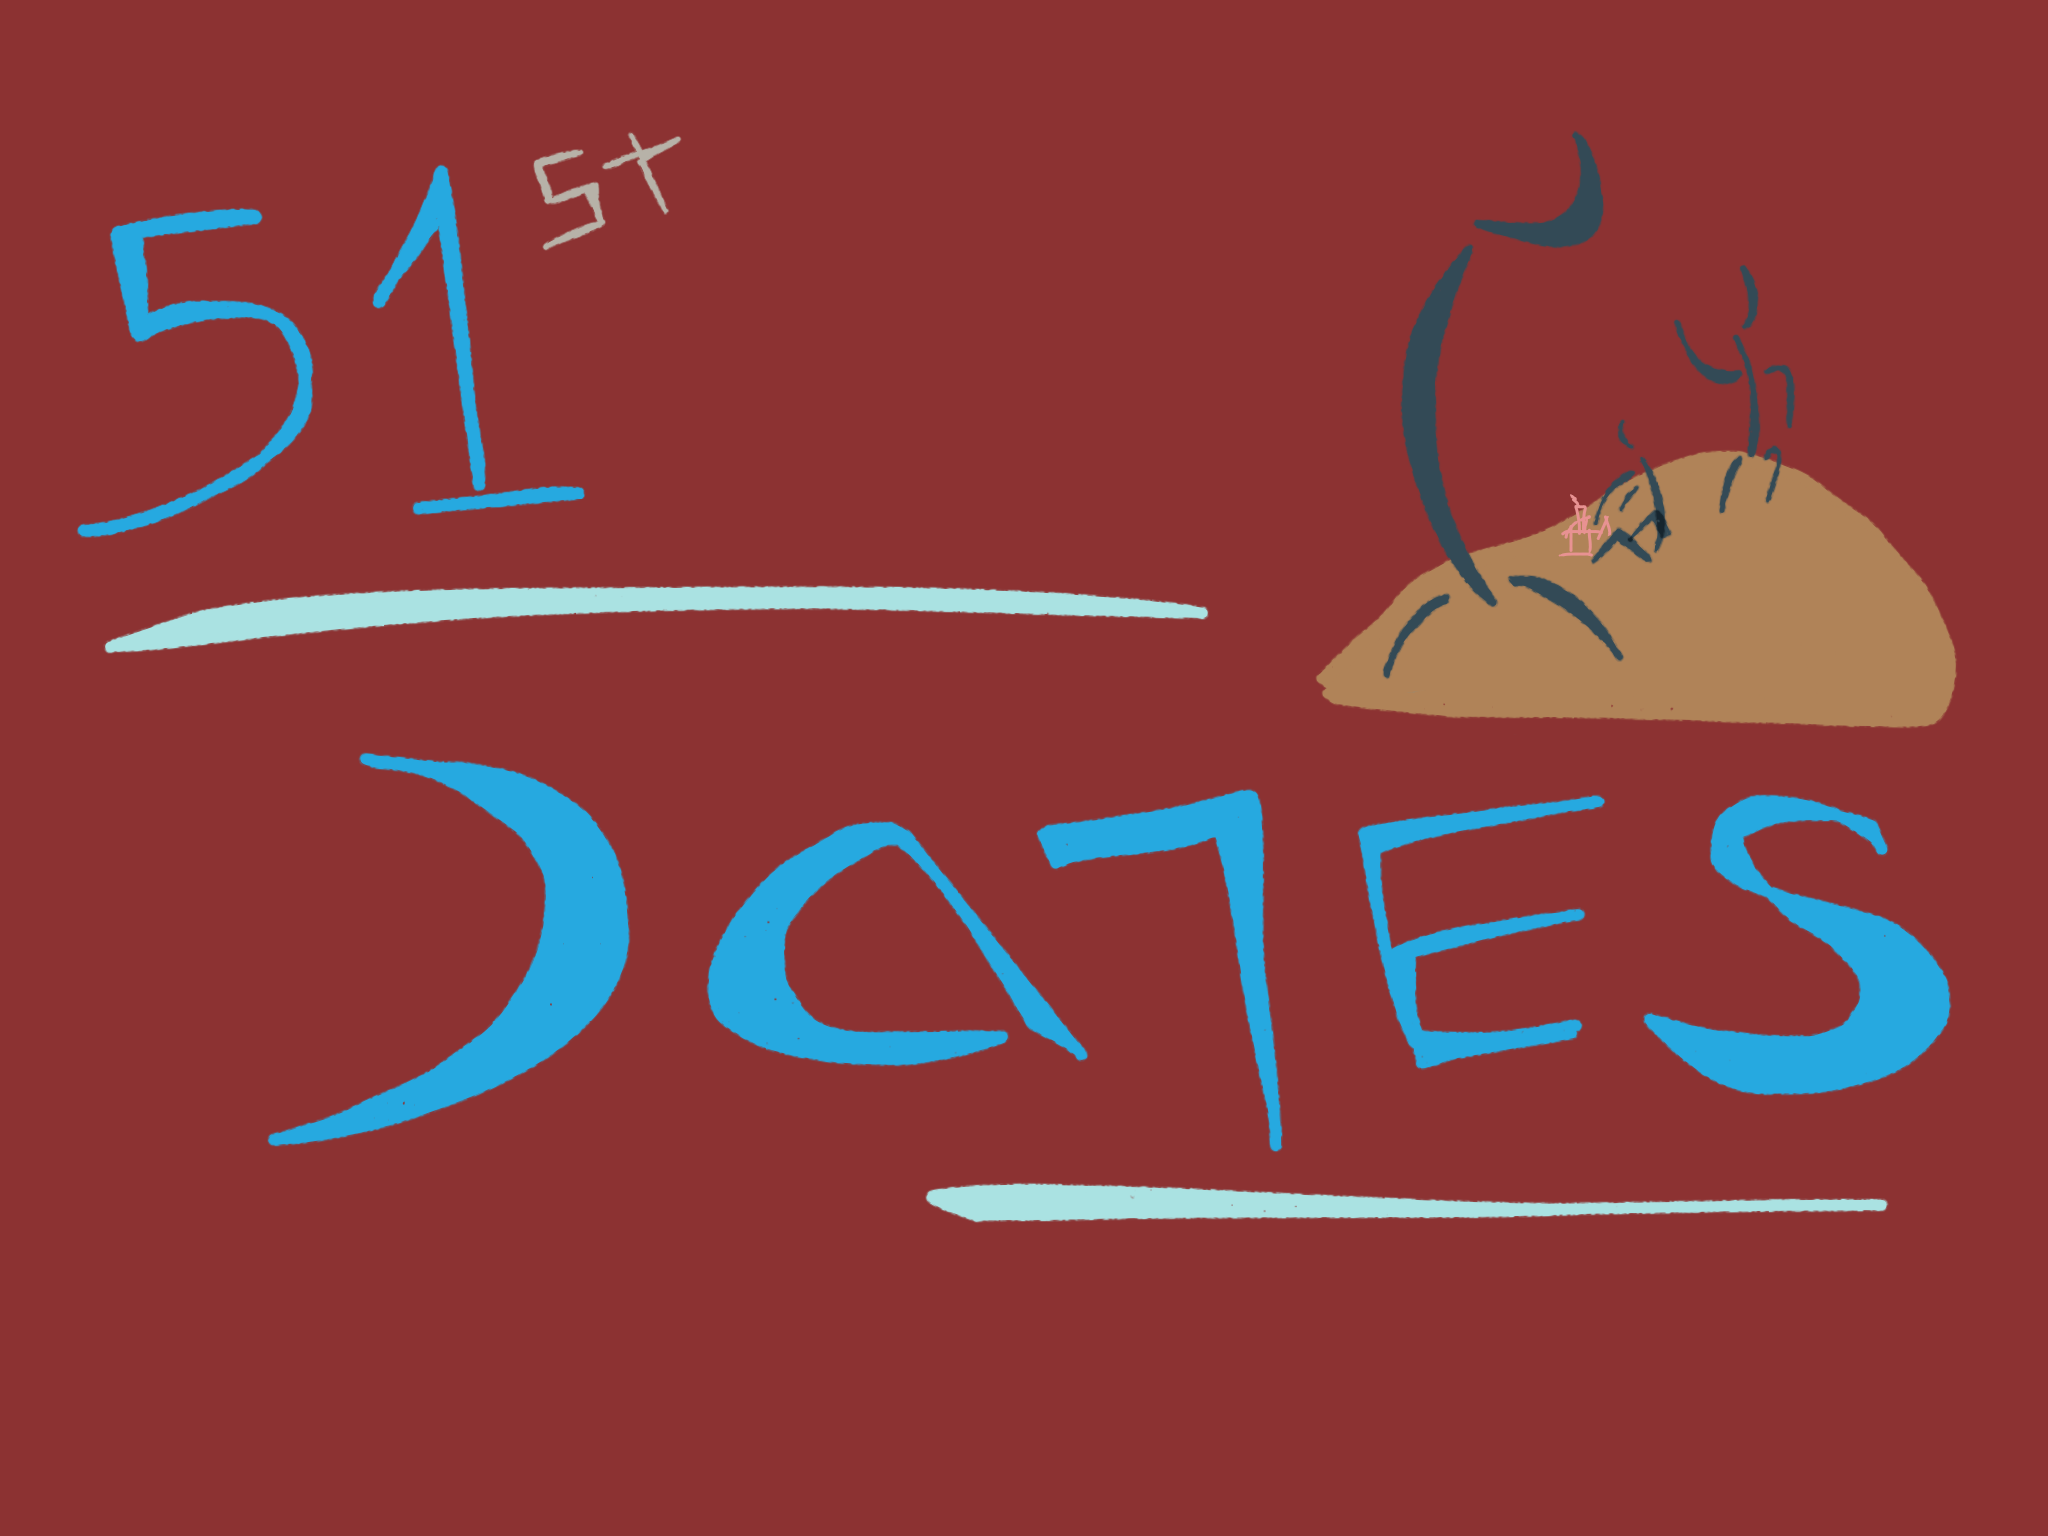 51st
DATES